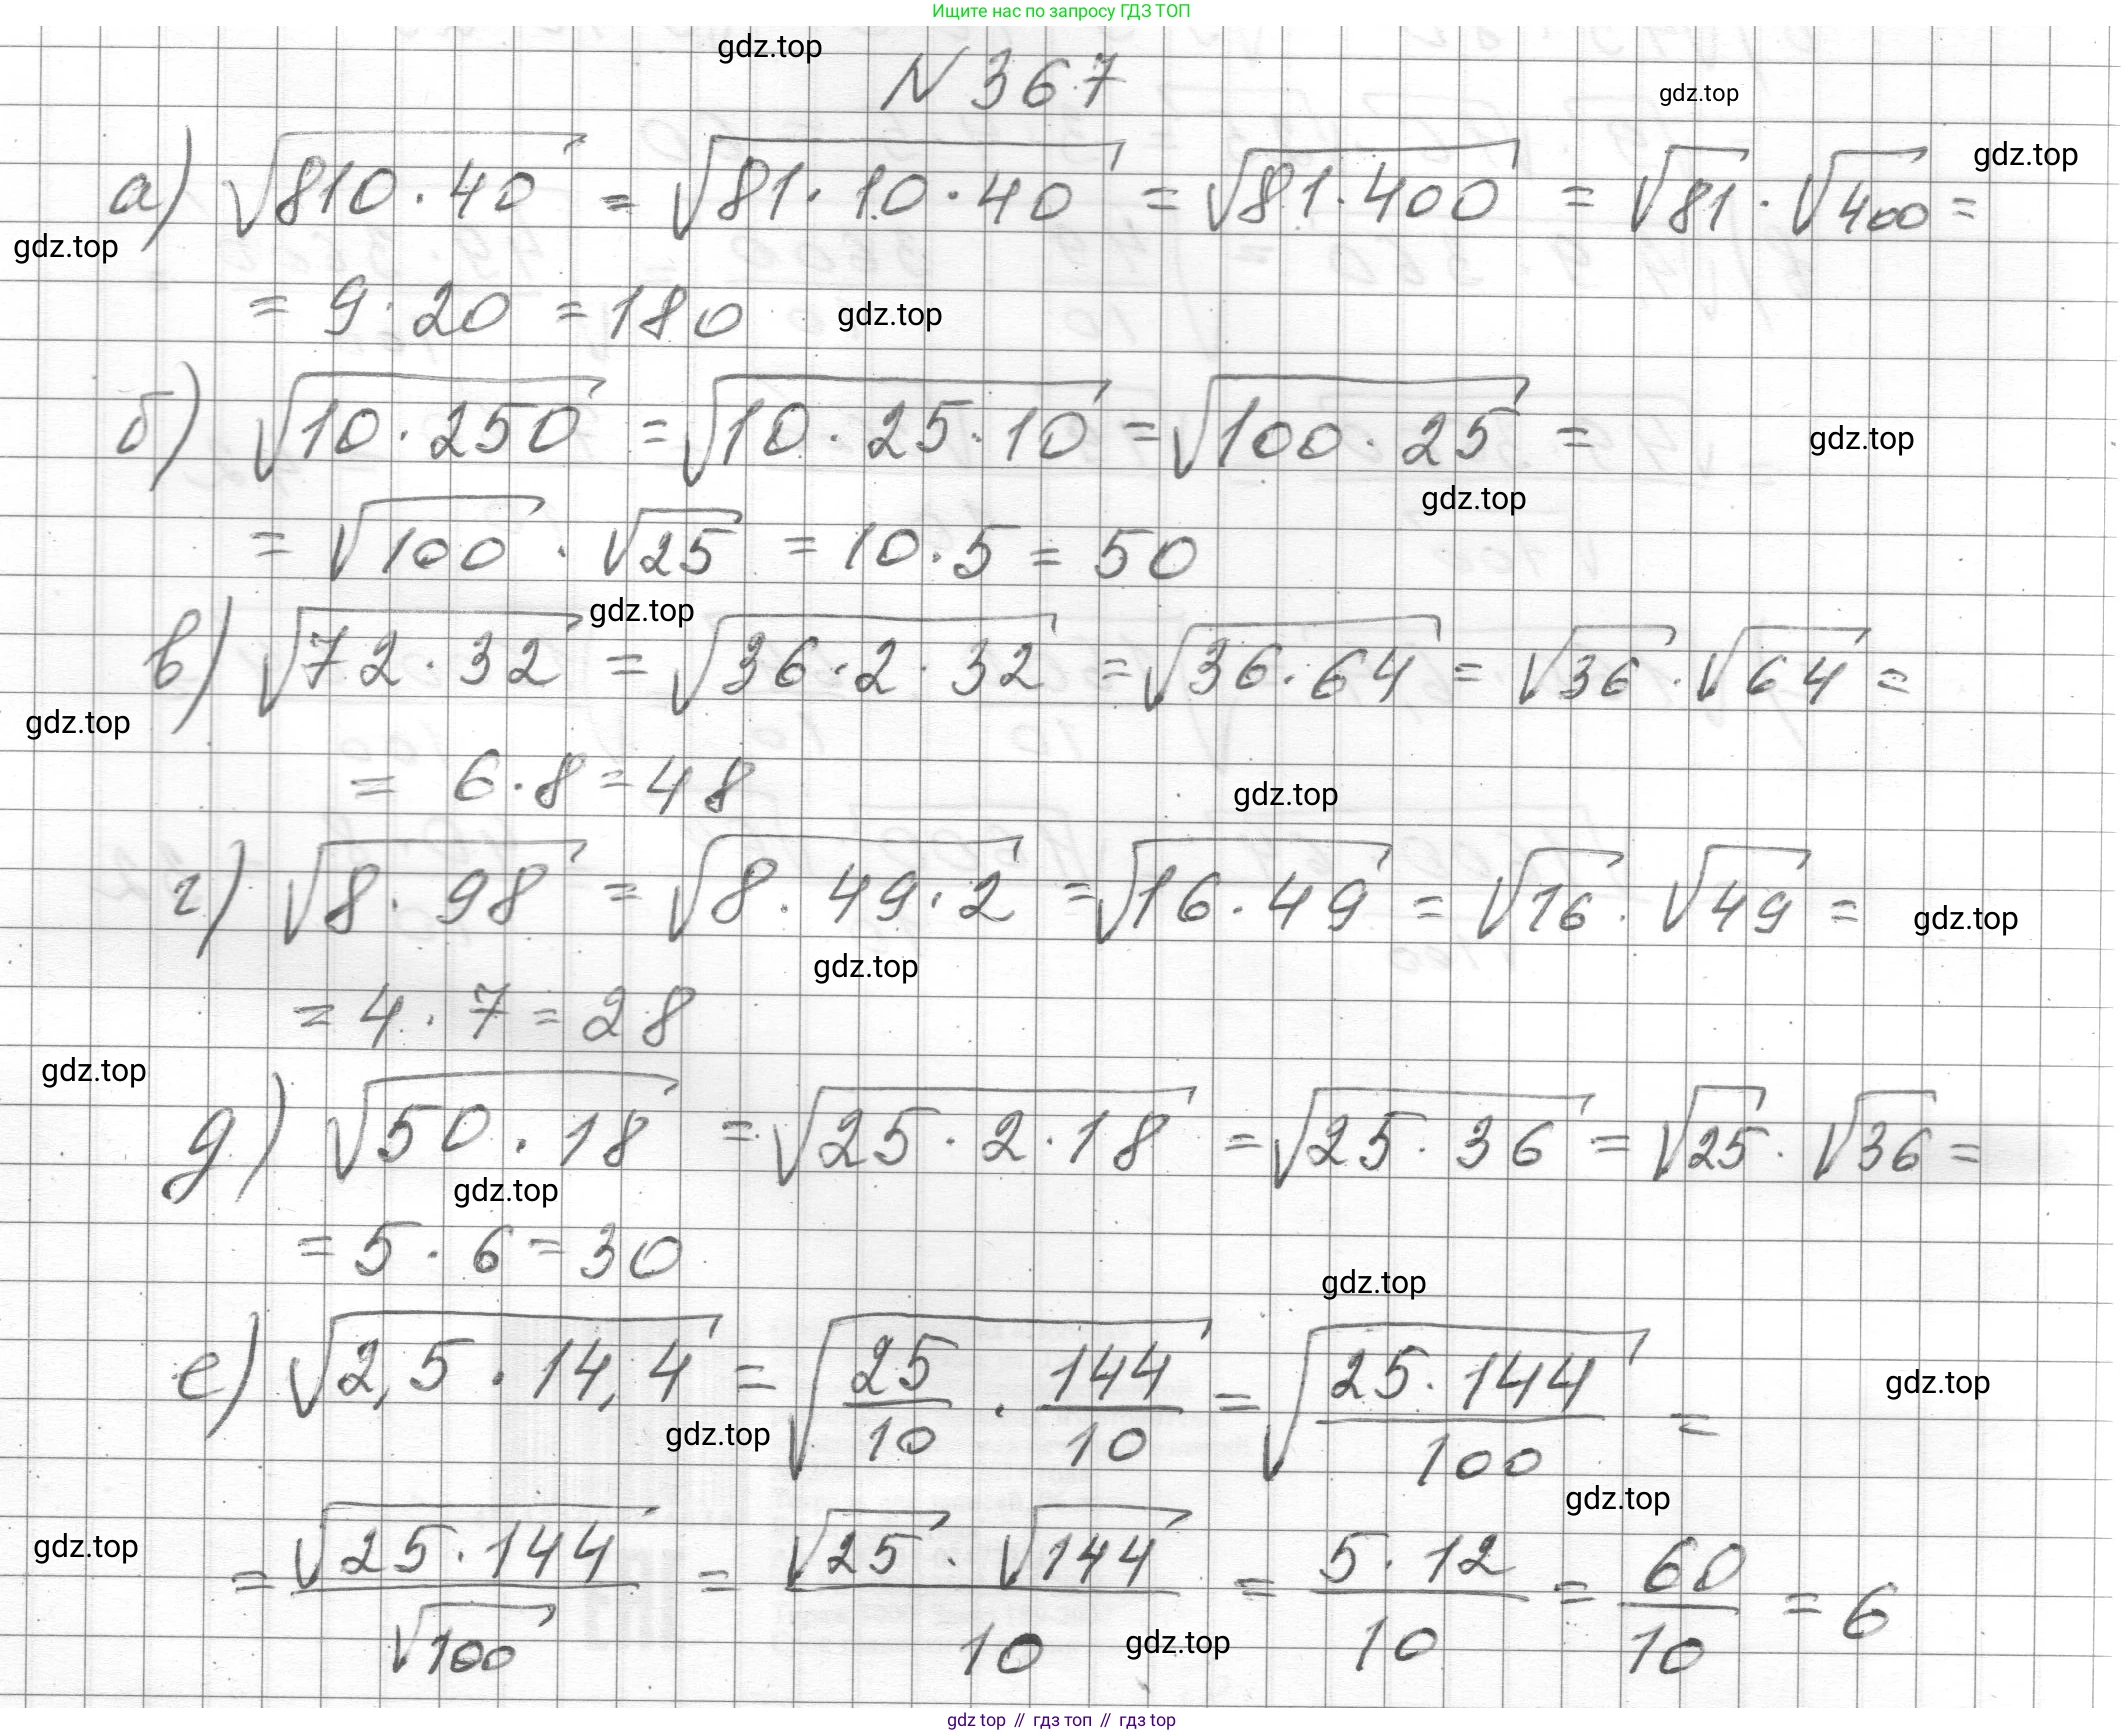 Ищите нас по запросу ГДЗ ТОП
gdz.top
N 367
gdz.top
а) √810·40 = √81·10·40 = √81·400 = √81 · √400 =
gdz.top
gdz.top
= 9·20 = 180
gdz.top
б) √10·250 = √10·25·10 = √100·25 =
gdz.top
gdz.top
= √100 · √25 = 10·5 = 50
gdz.top
в) √72·32 = √36·2·32 = √36·64 = √36 · √64 =
gdz.top
= 6·8 = 48
gdz.top
г) √8·98 = √8·49·2 = √16·49 = √16 · √49 =
gdz.top
gdz.top
= 4·7 = 28
gdz.top
д) √50·18 = √25·2·18 = √25·36 = √25 · √36 =
gdz.top
= 5·6 = 30
gdz.top
е) √2,5·14,4 = √25/10 · 144/10 = √25·144/100 =
gdz.top
gdz.top
gdz.top
gdz.top
= √25·144/√100 = √25 · √144/10 = 5·12/10 = 60/10 = 6
gdz.top
gdz top // гдз топ // гдз top